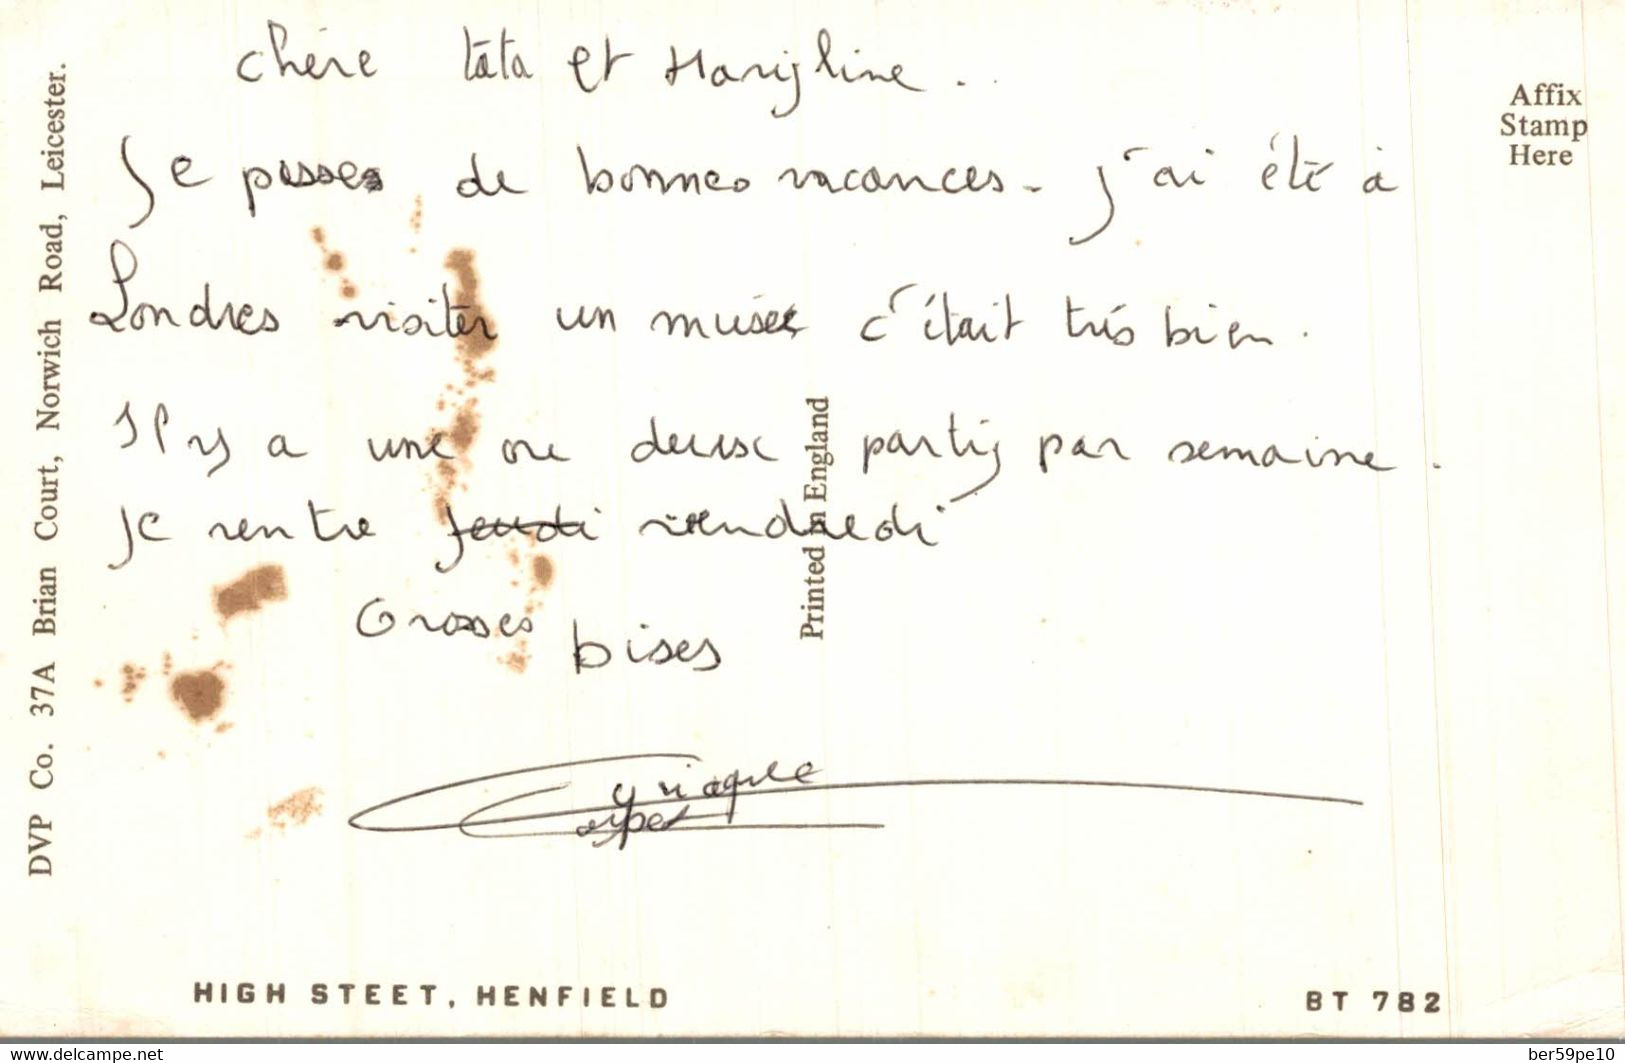 chère tata et Maryline.
Je passe de bonnes vacances. j'ai été à
Londres visiter un musée c'était très bien.
Il y a une ou deux party par semaine.
je rentre jeudi vendredi
Grosses bises
Cyriaque
DVP Co. 37A Brian Court, Norwich Road, Leicester.
Printed in England
Affix
Stamp
Here
HIGH STEET, HENFIELD
BT 782
www.delcampe.net
ber59pe10